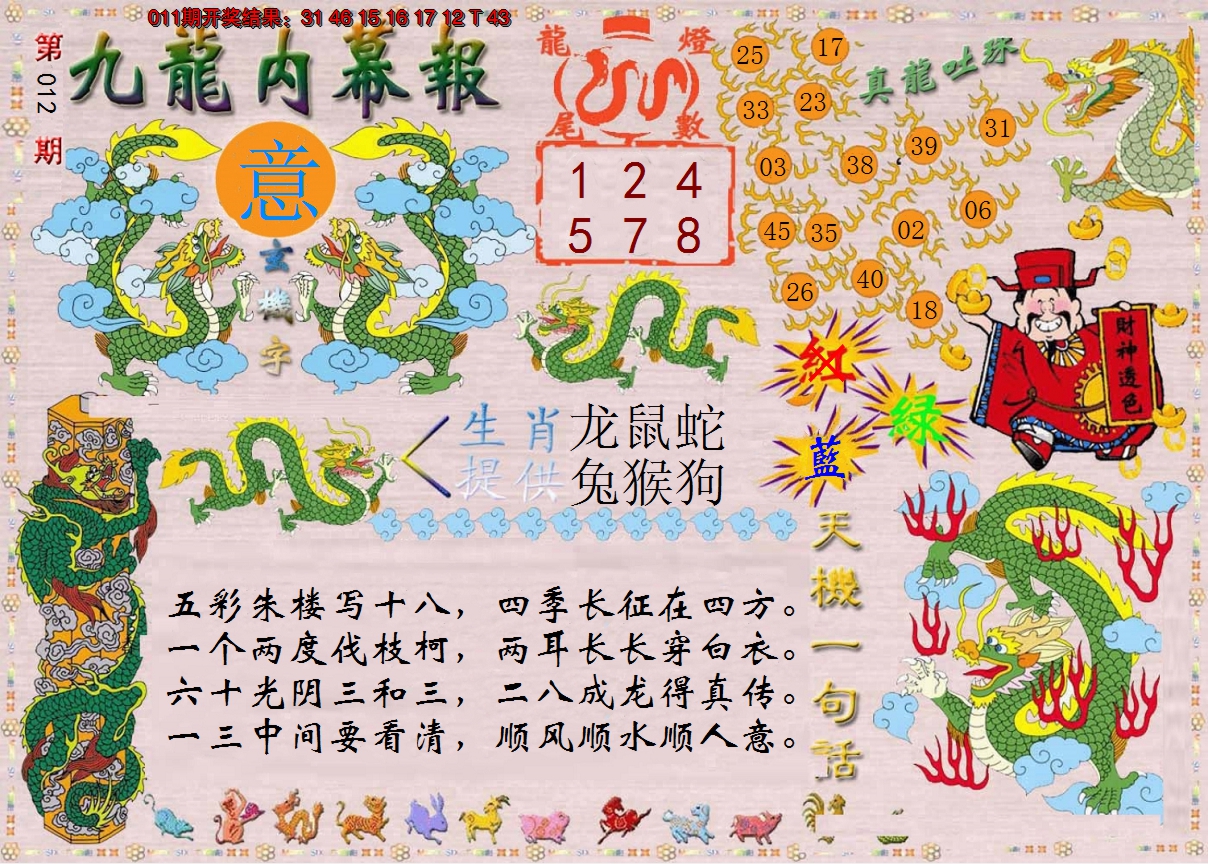 011期开奖结果：31 46 15 16 17 12 T 43
第012期
九龍内幕報
意
玄機字
龍燈尾數
1 2 4
5 7 8
真龍吐珠
25 17
33 23
39 31
03 38
06
45 35 02
26 40
18
紅
綠
藍
財神透色
生肖提供
龙鼠蛇
兔猴狗
五彩朱楼写十八，四季长征在四方。
一个两度伐枝柯，两耳长长穿白衣。
六十光阴三和三，二八成龙得真传。
一三中间要看清，顺风顺水顺人意。
天機一句話